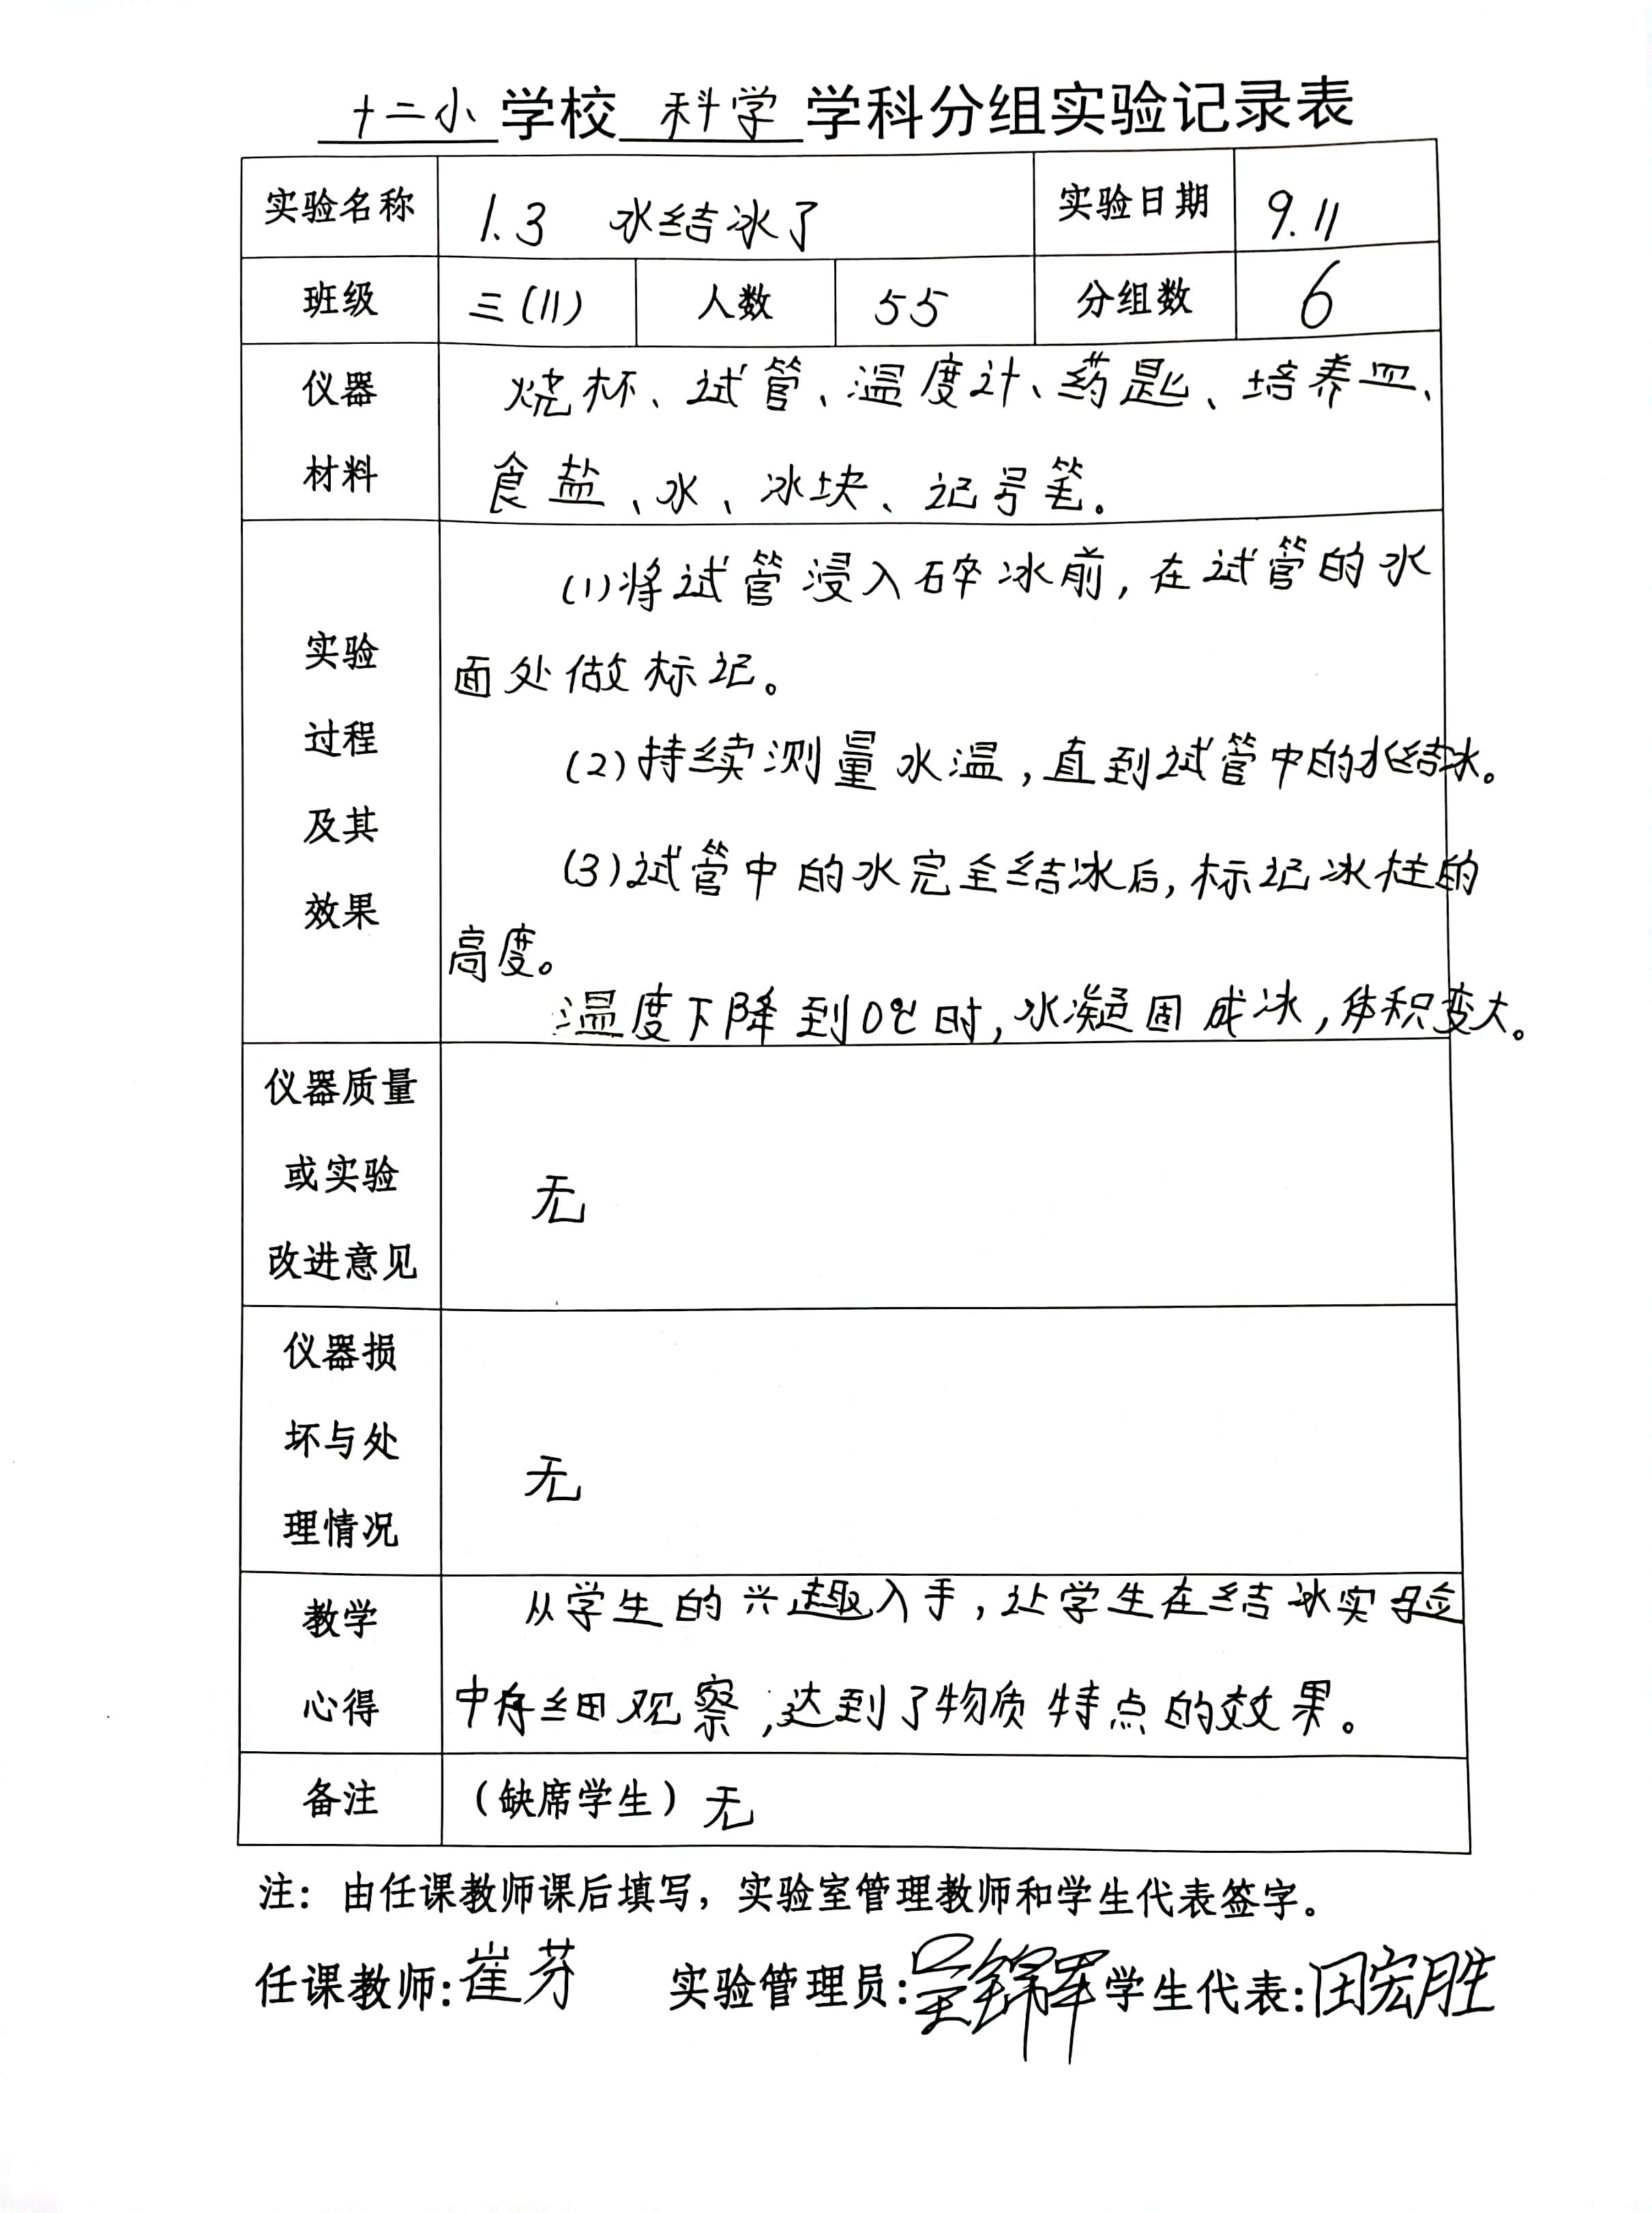 十二小学校科学学科分组实验记录表
实验名称 1.3 水结冰了 实验日期 9.11
班级 三(11) 人数 55 分组数 6
仪器 烧杯、试管、温度计、药匙、培养皿、
材料 食盐、水、冰块、记号笔。
(1)将试管浸入碎冰前,在试管的水
实验
面处做标记。
过程 (2)持续测量水温,直到试管中的水结冰。
及其
(3)试管中的水完全结冰后,标记冰柱的
效果
高度。
温度下降到0℃时,水凝固成冰,体积变大。
仪器质量
或实验 无
改进意见
仪器损
坏与处
无
理情况
教学 从学生的兴趣入手,让学生在结冰实验
心得 中仔细观察,达到了物质特点的效果。
备注 (缺席学生)无
注:由任课教师课后填写,实验室管理教师和学生代表签字。
任课教师:崔芬 实验管理员: 学生代表:田宏胜